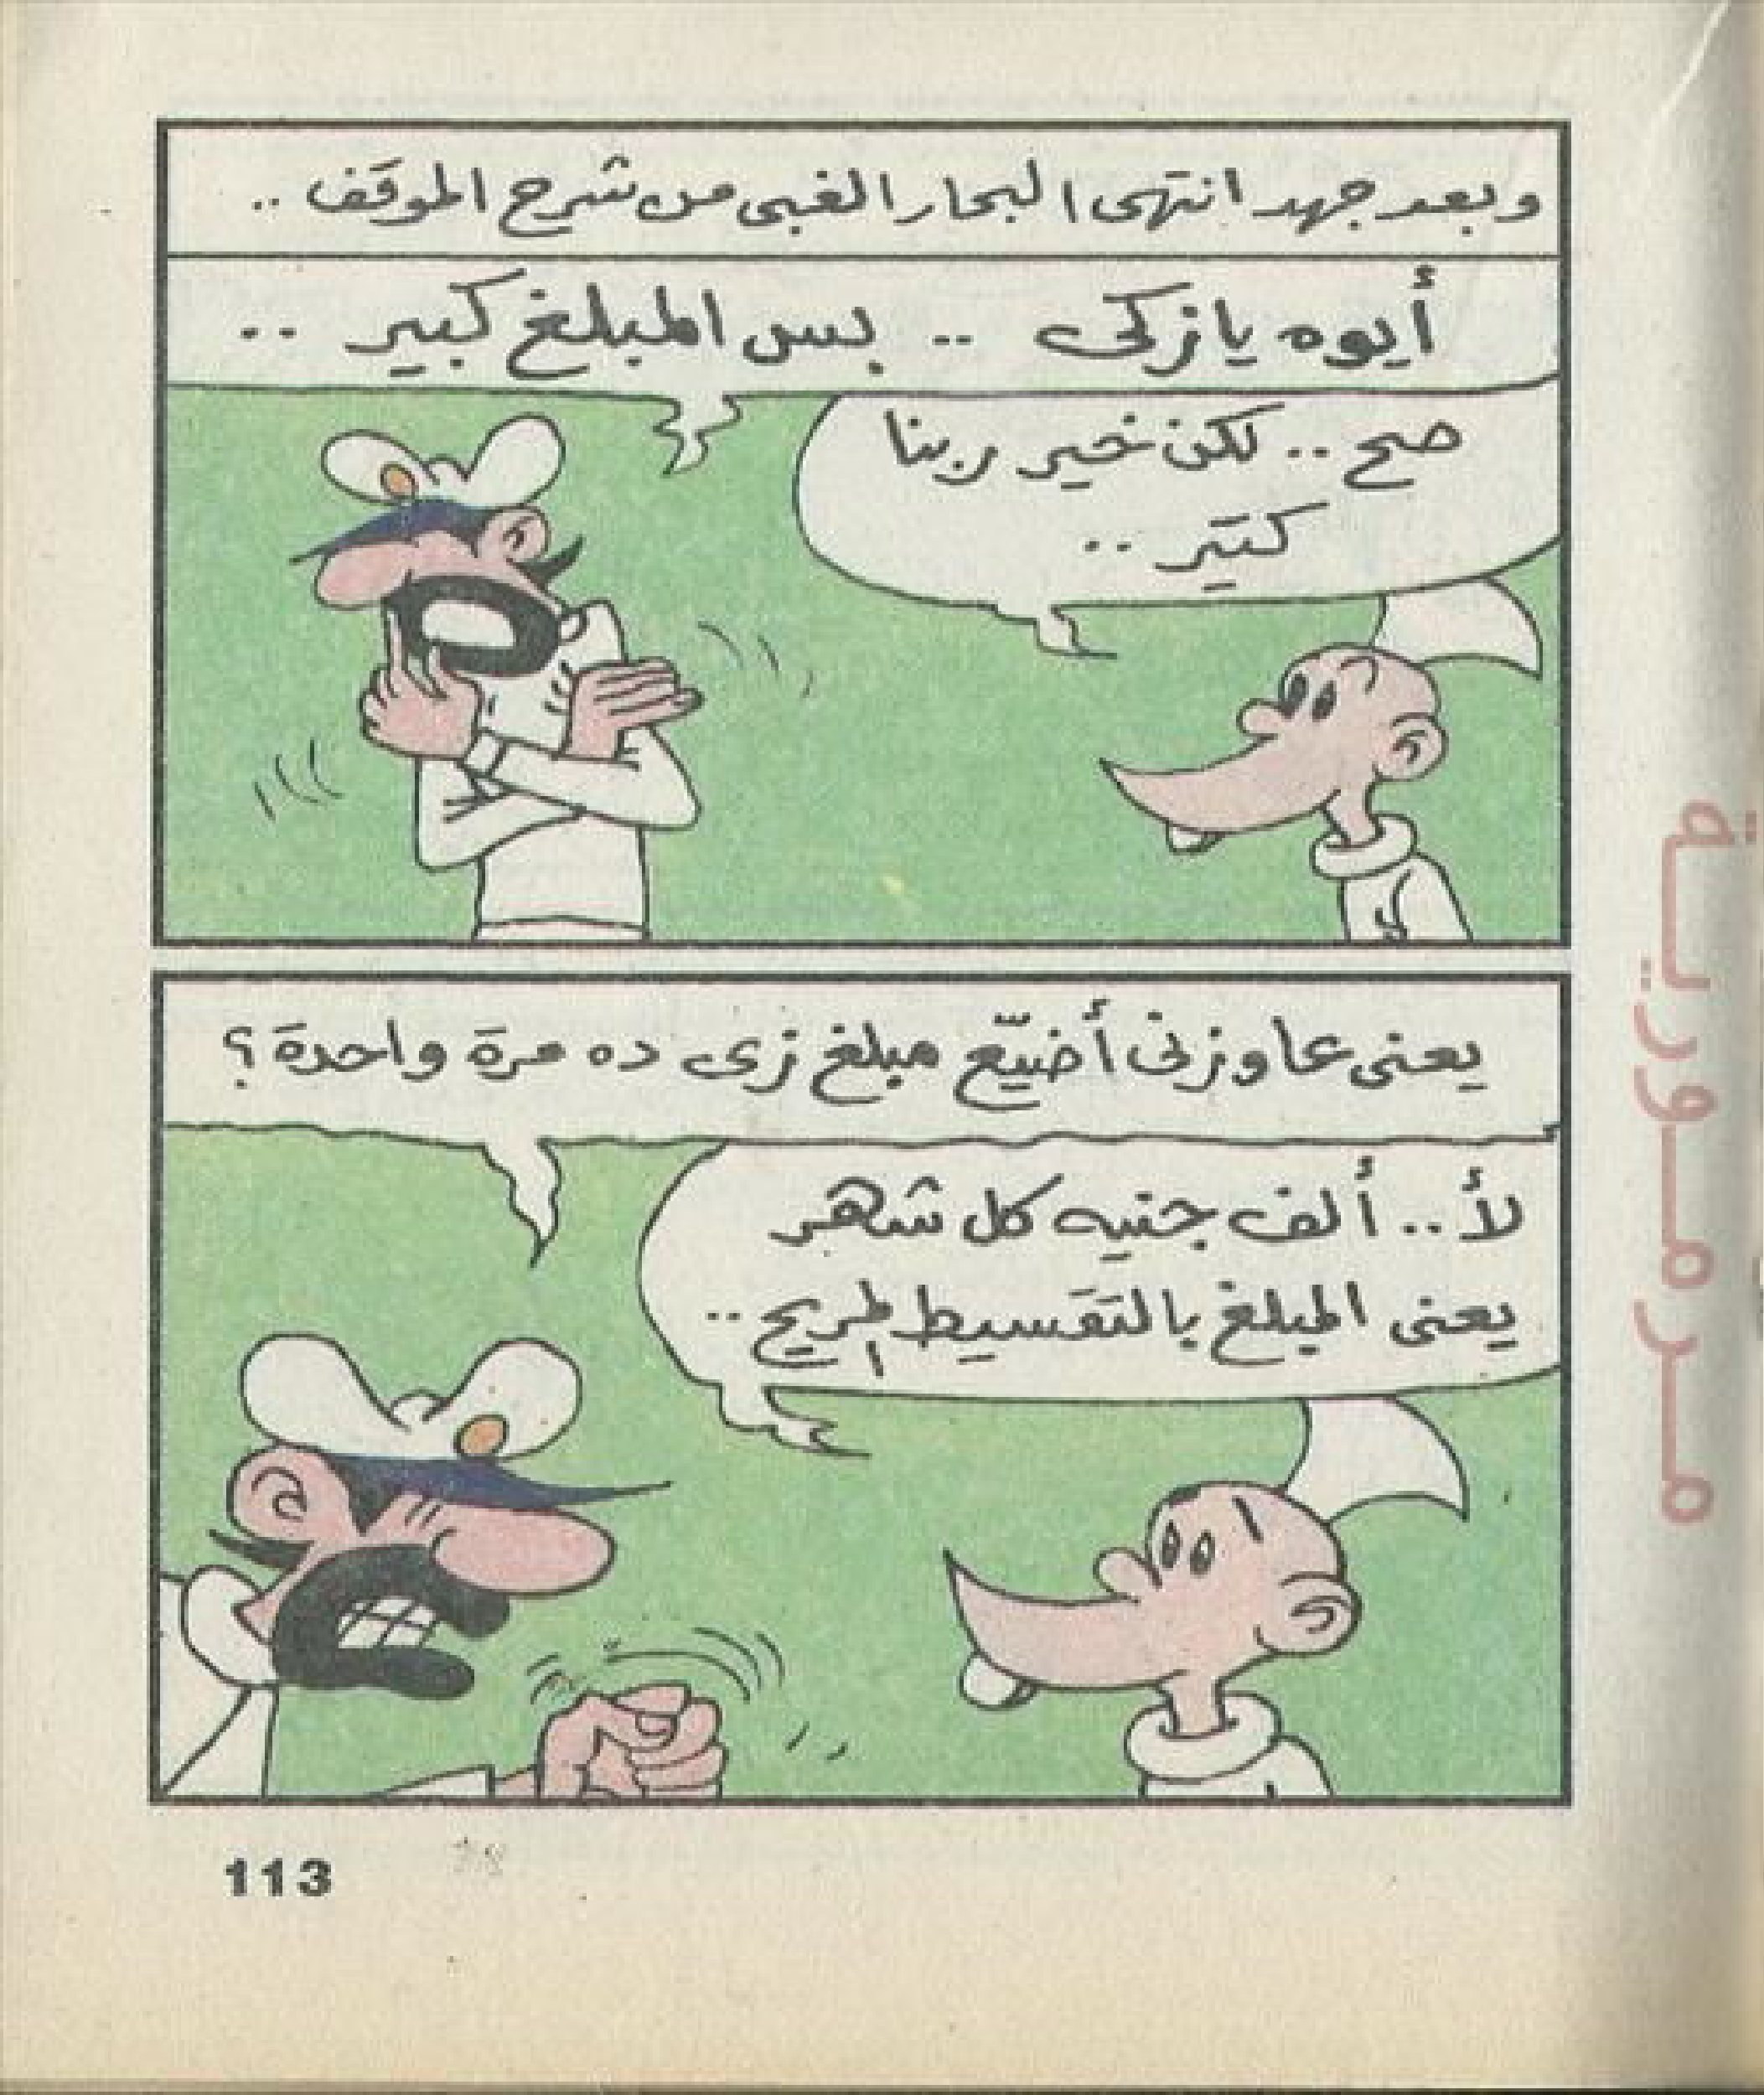 وبعد جهد انتهى البحار الغبى من شرح الموقف ..
أيوه يا زكى .. بس المبلغ كبير ..
صح .. لكن خير ربنا
كتير ..
يعنى عاوزنى أضيّع مبلغ زى ده مرة واحدة؟
لأ .. ألف جنيه كل شهر
يعنى المبلغ بالتقسيط المريح ..
113
مرمورية